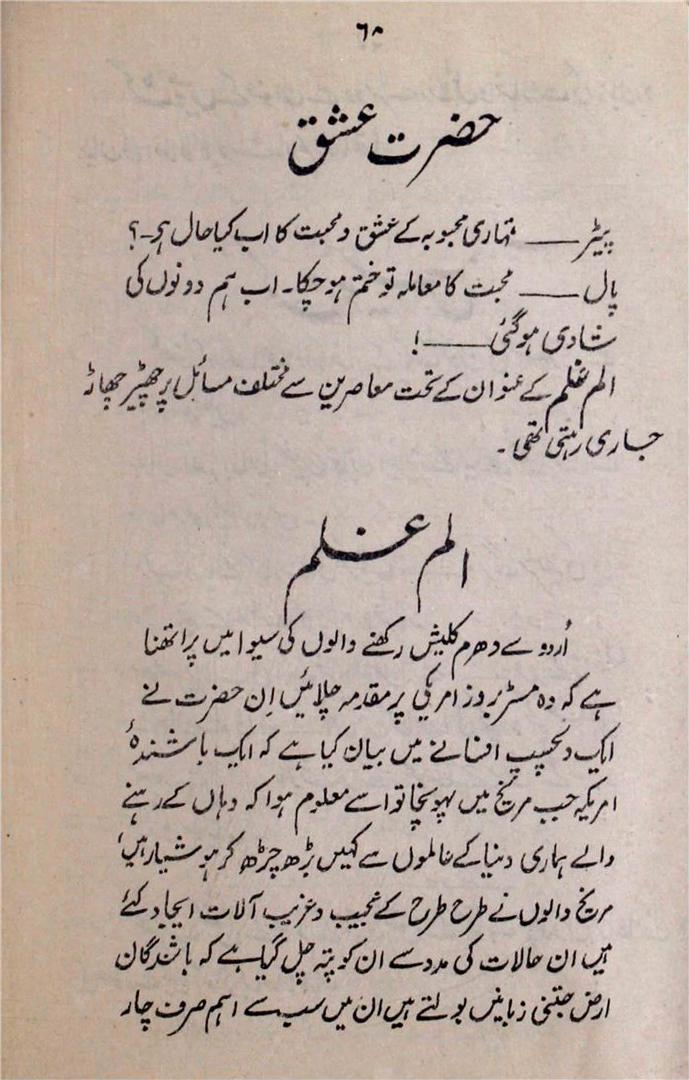 ۶۸
حضرت عشق
پیٹر ——— تمہاری محبوبہ کے عشق و محبت کا اب کیا حال ہے۔؟
پال ——— محبت کا معاملہ تو ختم ہو چکا۔ اب ہم دونوں کی
شادی ہو گئی ——— !
الم غلم کے عنوان کے تحت معاصرین سے مختلف مسائل پر چھیڑ چھاڑ
جاری رہتی تھی۔
الم غلم
اُردو سے دھرم کلیش رکھنے والوں کی سیوا میں پراتھنا
ہے کہ وہ مسٹر بروز امریکی پر مقدمہ چلائیں اِن حضرت نے
ایک دلچسپ افسانے میں بیان کیا ہے کہ ایک باشندۂ
امریکہ جب مریخ میں پہونچا تو اسے معلوم ہوا کہ وہاں کے رہنے
والے ہماری دنیا کے عالموں سے کہیں بڑھ چڑھ کر ہوشیار ہیں'
مریخ والوں نے طرح طرح کے عجیب و غریب آلات ایجاد کئے
ہیں ان حالات کی مدد سے ان کو پتہ چل گیا ہے کہ باشندگان
ارض جتنی زبانیں بولتے ہیں ان میں سب سے اہم صرف چار